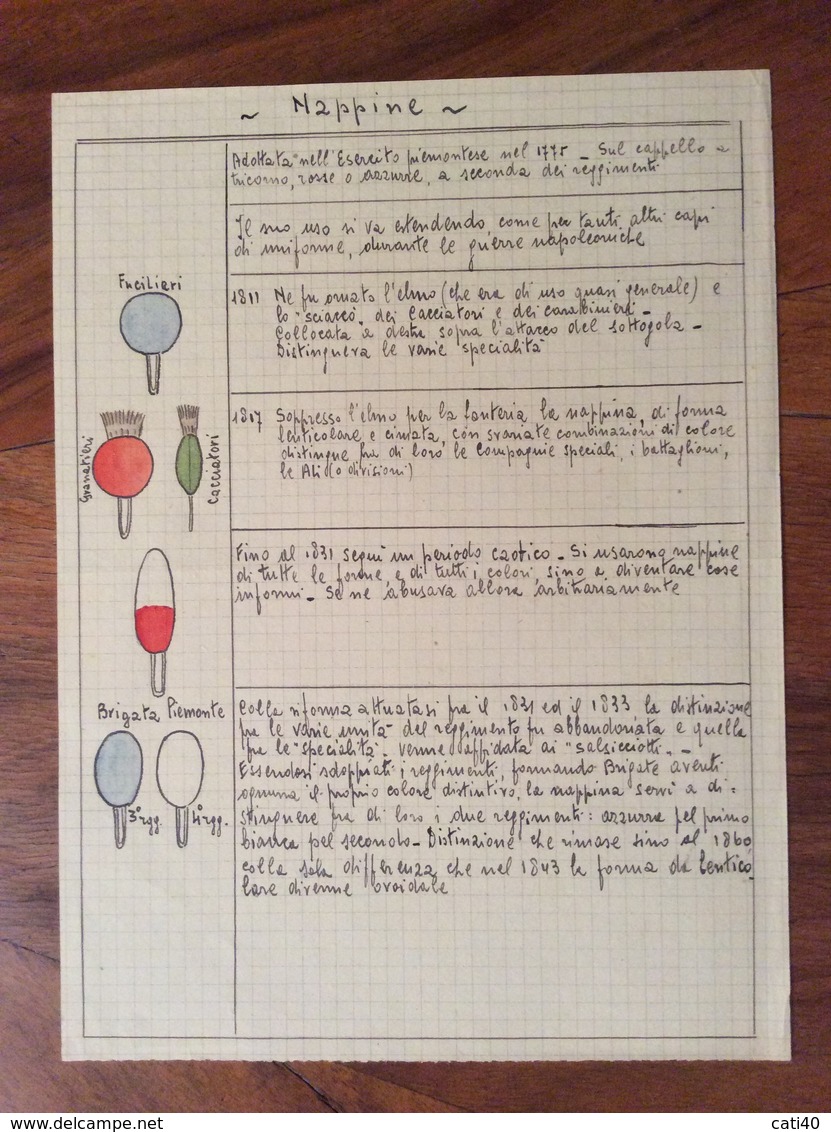 ~ Nappine ~
Adottata nell'Esercito piemontese nel 1775 _ Sul cappello a
tricorno, rosse o azzurre, a seconda dei reggimenti
Il suo uso si va estendendo, come per tanti altri capi
di uniforme, durante le guerre napoleoniche
Fucilieri
1811 Ne fu ornato l'elmo (che era di uso quasi generale) e
lo "sciaccò" dei Cacciatori e dei carabinieri _
Collocata a destra sopra l'attacco del sottogola _
Distingueva le varie specialità
Granatieri
Cacciatori
1817 Soppresso l'elmo per la fanteria, la nappina, di forma
lenticolare e cimata, con svariate combinazioni di colore
distingue fra di loro le Compagnie speciali, i battaglioni,
le Ali (o divisioni)
Fino al 1831 seguì un periodo caotico _ Si usarono nappine
di tutte le forme, e di tutti i colori, sino a diventare cose
informi _ Se ne abusava allora arbitrariamente
Brigata Piemonte
3° rgg.
4° rgg.
Colla riforma attuatasi fra il 1831 ed il 1833 la distinzione
fra le varie unità del reggimento fu abbandonata e quella
fra le "specialità" venne affidata ai "salsicciotti" _
Essendosi sdoppiati i reggimenti, formando Brigate aventi
ognuna il proprio colore distintivo, la nappina servì a di=
stinguere fra di loro i due reggimenti: azzurra pel primo
bianca pel secondo _ Distinzione che rimase sino al 1860
colla sola differenza che nel 1843 la forma da lentico
lare divenne ovoidale
cati40